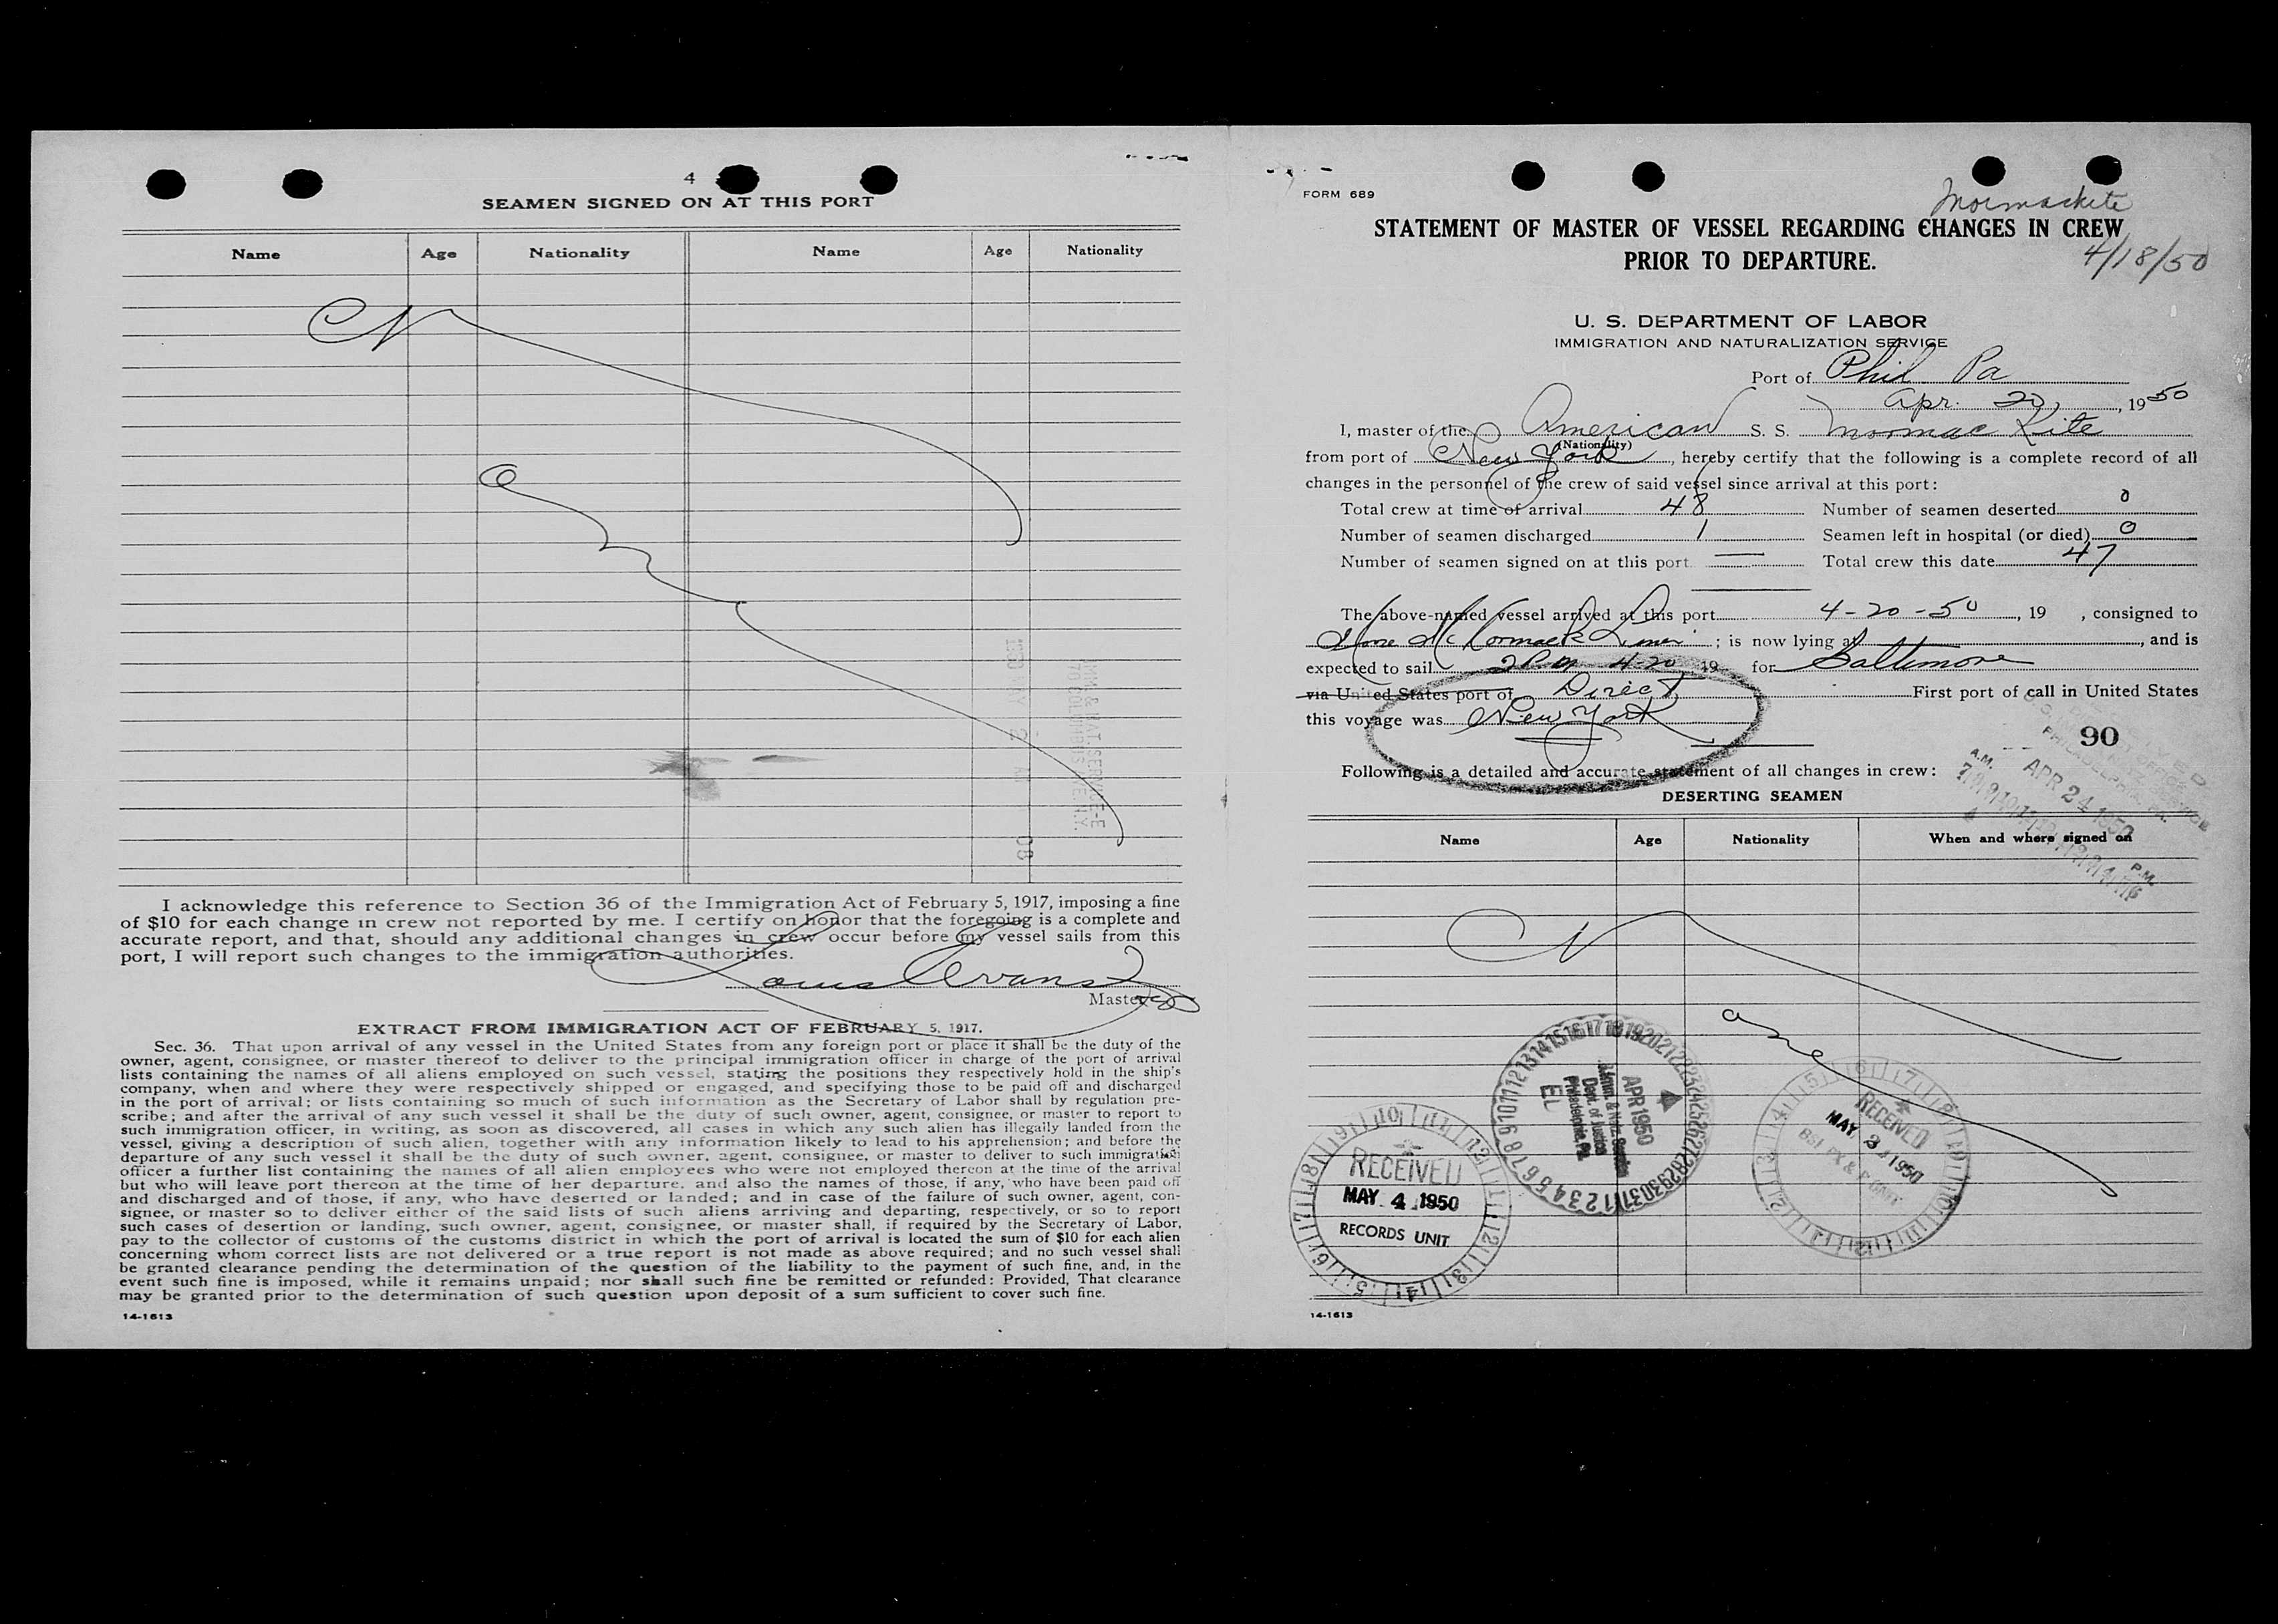 4
SEAMEN SIGNED ON AT THIS PORT
Name Age Nationality Name Age Nationality
None
I acknowledge this reference to Section 36 of the Immigration Act of February 5, 1917, imposing a fine
of $10 for each change in crew not reported by me. I certify on honor that the foregoing is a complete and
accurate report, and that, should any additional changes in crew occur before my vessel sails from this
port, I will report such changes to the immigration authorities.
Louis Evans
Master
EXTRACT FROM IMMIGRATION ACT OF FEBRUARY 5, 1917.
Sec. 36. That upon arrival of any vessel in the United States from any foreign port or place it shall be the duty of the
owner, agent, consignee, or master thereof to deliver to the principal immigration officer in charge of the port of arrival
lists containing the names of all aliens employed on such vessel, stating the positions they respectively hold in the ship's
company, when and where they were respectively shipped or engaged, and specifying those to be paid off and discharged
in the port of arrival; or lists containing so much of such information as the Secretary of Labor shall by regulation pre-
scribe; and after the arrival of any such vessel it shall be the duty of such owner, agent, consignee, or master to report to
such immigration officer, in writing, as soon as discovered, all cases in which any such alien has illegally landed from the
vessel, giving a description of such alien, together with any information likely to lead to his apprehension; and before the
departure of any such vessel it shall be the duty of such owner, agent, consignee, or master to deliver to such immigration
officer a further list containing the names of all alien employees who were not employed thereon at the time of the arrival
but who will leave port thereon at the time of her departure, and also the names of those, if any, who have been paid off
and discharged and of those, if any, who have deserted or landed; and in case of the failure of such owner, agent, con-
signee, or master so to deliver either of the said lists of such aliens arriving and departing, respectively, or so to report
such cases of desertion or landing, such owner, agent, consignee, or master shall, if required by the Secretary of Labor,
pay to the collector of customs of the customs district in which the port of arrival is located the sum of $10 for each alien
concerning whom correct lists are not delivered or a true report is not made as above required; and no such vessel shall
be granted clearance pending the determination of the question of the liability to the payment of such fine, and, in the
event such fine is imposed, while it remains unpaid; nor shall such fine be remitted or refunded: Provided, That clearance
may be granted prior to the determination of such question upon deposit of a sum sufficient to cover such fine.
14-1613
FORM 689
Mormackite
STATEMENT OF MASTER OF VESSEL REGARDING CHANGES IN CREW
PRIOR TO DEPARTURE.
4/18/50
U. S. DEPARTMENT OF LABOR
IMMIGRATION AND NATURALIZATION SERVICE
Port of Phil Pa
Apr. 20, 1950
I, master of the American S. S. Mormac Kite
(Nationality)
from port of New York, hereby certify that the following is a complete record of all
changes in the personnel of the crew of said vessel since arrival at this port:
Total crew at time of arrival 48 Number of seamen deserted 0
Number of seamen discharged 1 Seamen left in hospital (or died) 0
Number of seamen signed on at this port — Total crew this date 47
The above-named vessel arrived at this port 4-20-50, 19 , consigned to
Moore McCormack Lines; is now lying at , and is
expected to sail 2 PM 4-20 19 for Baltimore
via United States port of Direct First port of call in United States
this voyage was New York
90
Following is a detailed and accurate statement of all changes in crew:
DESERTING SEAMEN
A.M. APR 24 1950 P.M.
Name Age Nationality When and where signed on
None
RECEIVED
MAY 4 1950
RECORDS UNIT
APR 1950
Imm. & Ntz. Service
Dept. of Justice
Philadelphia, Pa.
EL
RECEIVED
MAY 3 1950
14-1613